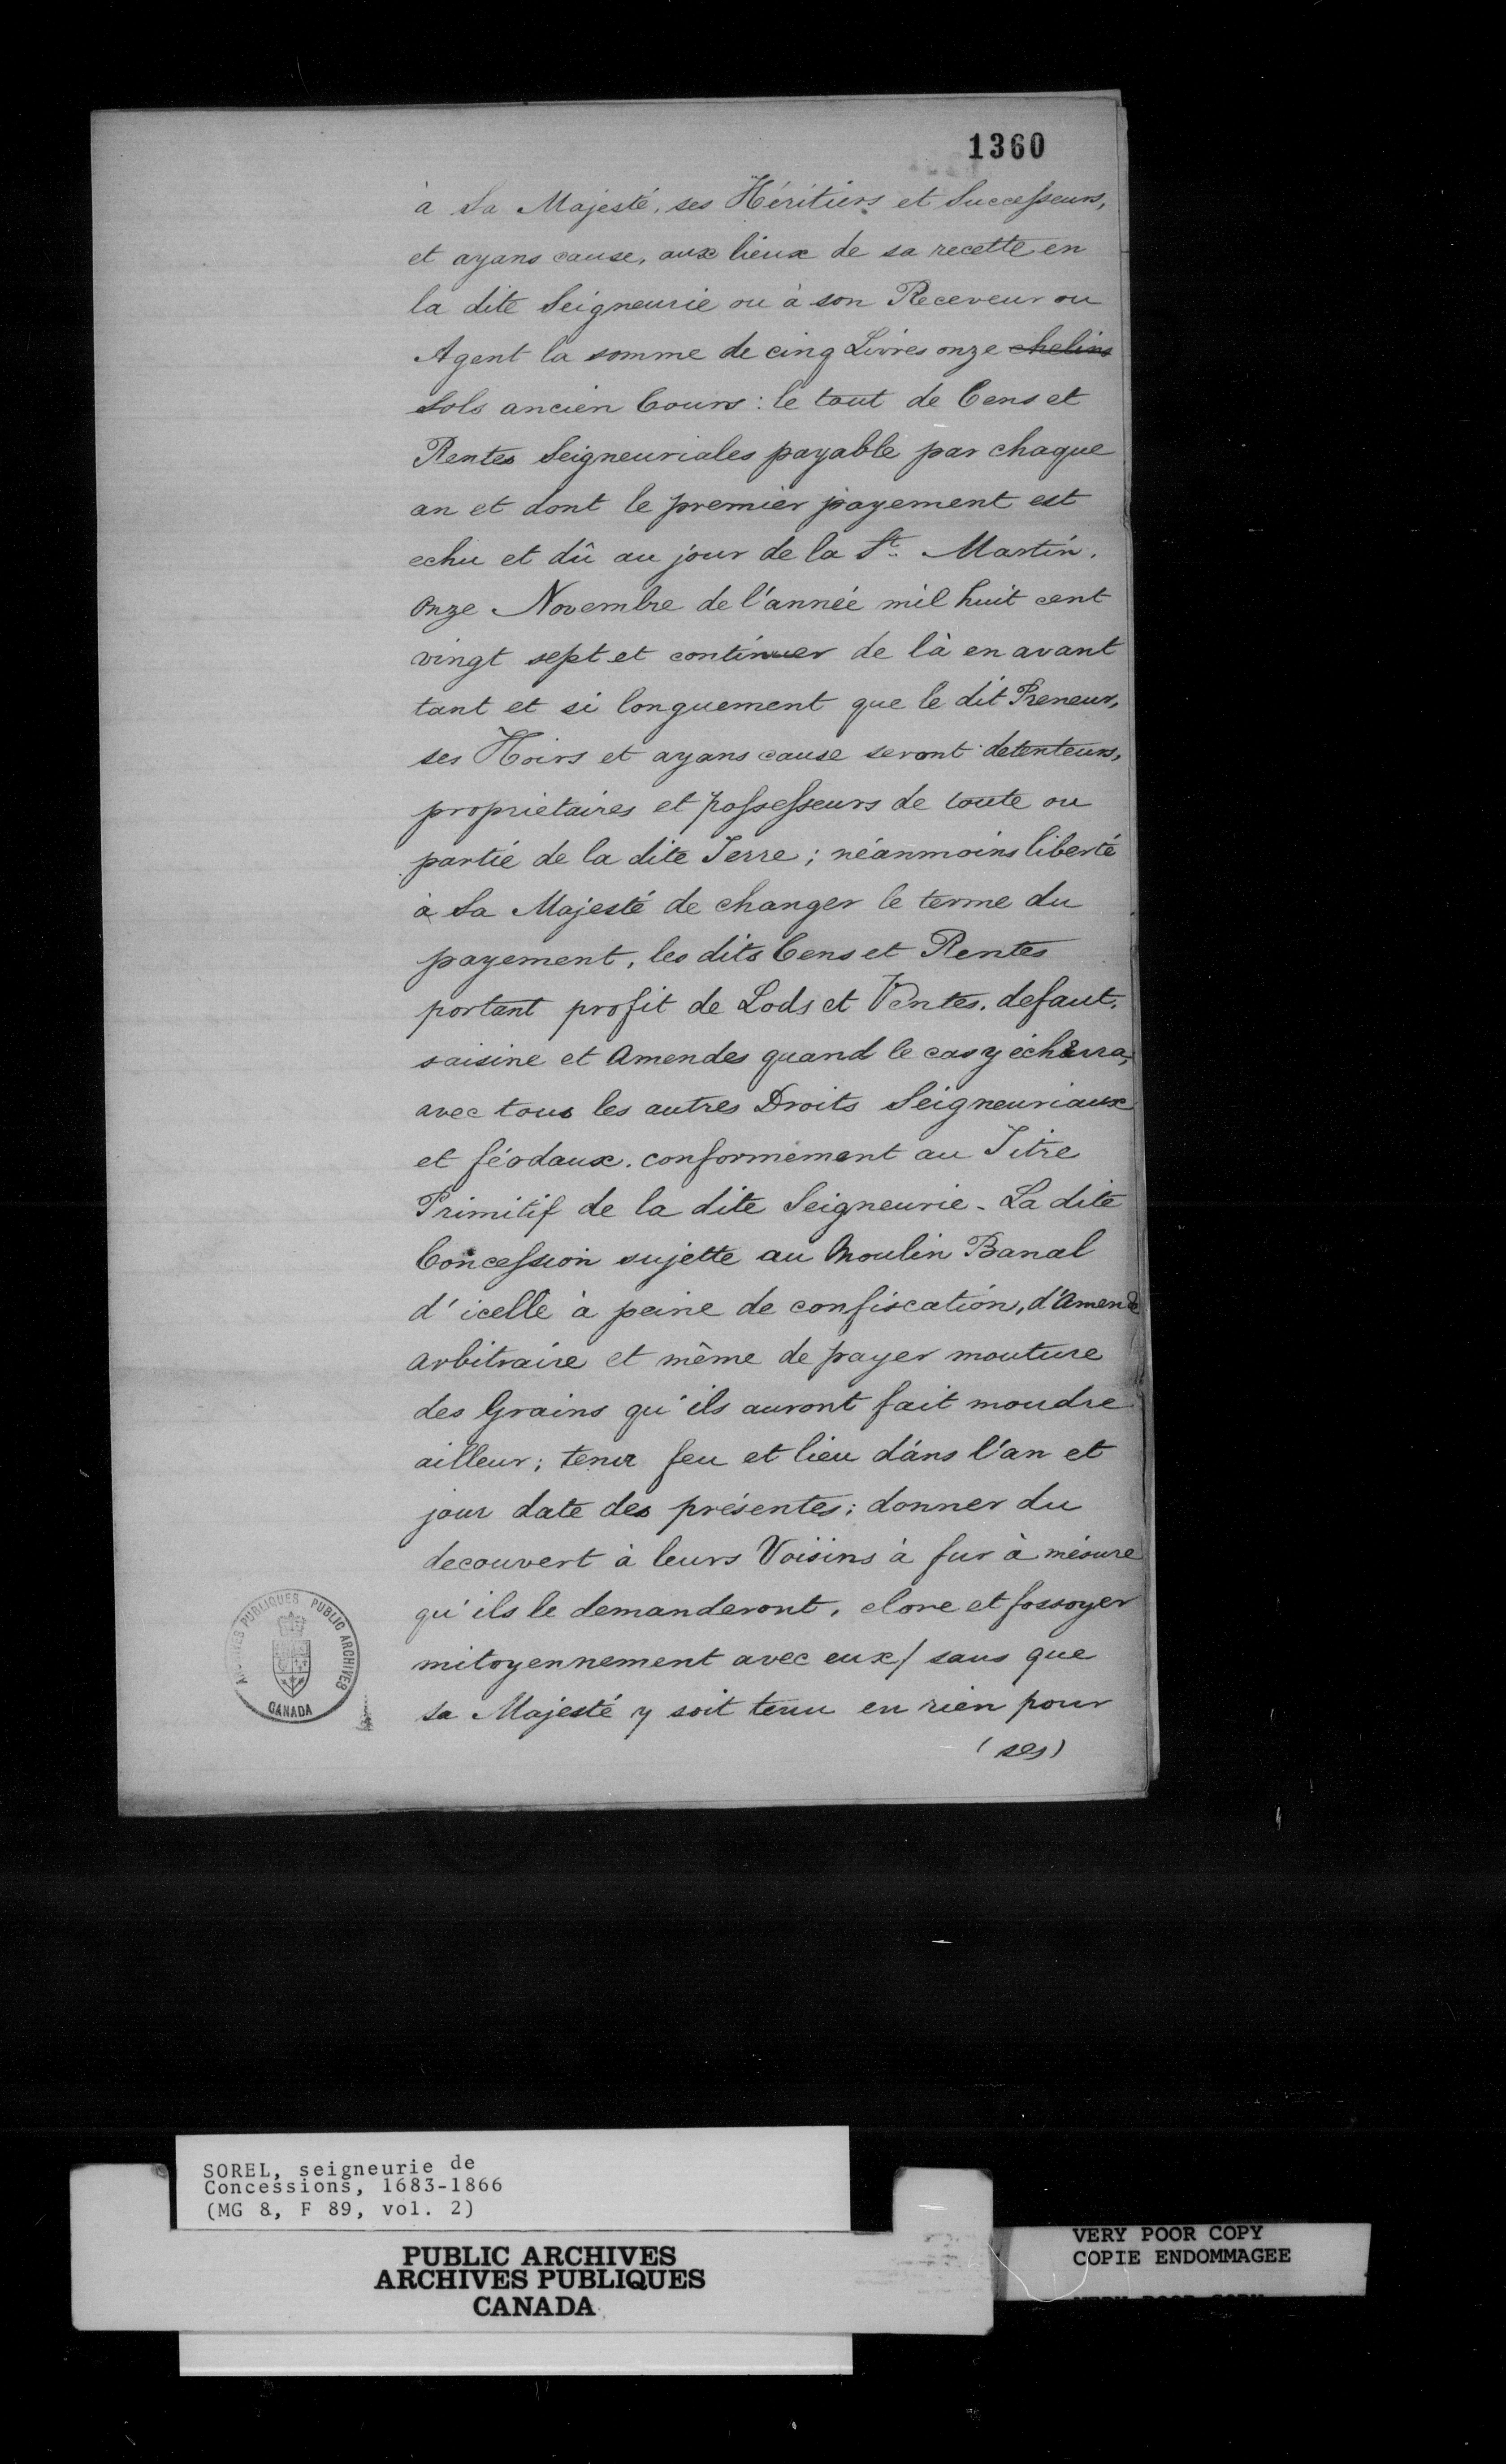 1360
à Sa Majesté, ses Héritiers et Successeurs,
et ayans cause, aux lieux de sa recette en
la dite Seigneurie ou à son Receveur ou
Agent la somme de cinq Livres onze chelins
Sols ancien Cours : le tout de Cens et
Rentes Seigneuriales payable par chaque
an et dont le premier payement est
echu et dû au jour de la St. Martin.
Onze Novembre de l'année mil huit cent
vingt sept et continuer de là en avant
tant et si longuement que le dit Preneur,
ses Hoirs et ayans cause seront detenteurs,
proprietaires et possesseurs de toute ou
partie de la dite Terre ; néanmoins liberté
à Sa Majesté de changer le terme du
payement, les dits Cens et Rentes
portant profit de Lods et Ventes, defaut,
saisine et Amendes quand le cas y écherra,
avec tous les autres Droits Seigneuriaux
et féodaux. conformement au Titre
Primitif de la dite Seigneurie - La dite
Concession sujette au Moulin Banal
d'icelle à peine de confiscation, d'Amende
arbitraire et même de payer mouture
des Grains qu'ils auront fait moudre
ailleur ; tenir feu et lieu dans l'an et
jour date des présentes ; donner du
decouvert à leurs Voisins à fur à mésure
qu'ils le demanderont, clore et fossoyer
mitoyennement avec eux / sans que
sa Majesté y soit tenu en rien pour
(ses)
ARCHIVES PUBLIQUES PUBLIC ARCHIVES
CANADA
SOREL, seigneurie de
Concessions, 1683-1866
(MG 8, F 89, vol. 2)
PUBLIC ARCHIVES
ARCHIVES PUBLIQUES
CANADA
VERY POOR COPY
COPIE ENDOMMAGEE
VERY POOR COPY